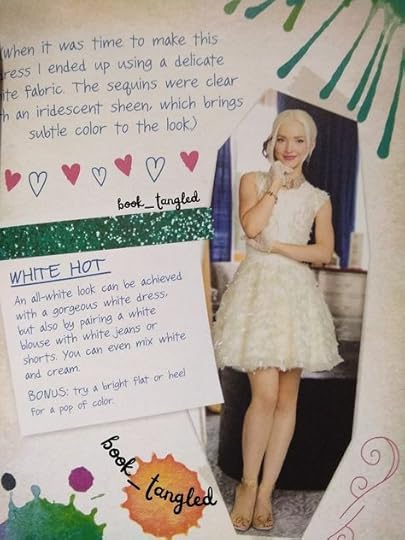 (when it was time to make this
ress I ended up using a delicate
ite fabric. The sequins were clear
h an iridescent sheen, which brings
subtle color to the look.)
book_tangled
WHITE HOT
An all-white look can be achieved
with a gorgeous white dress,
but also by pairing a white
blouse with white jeans or
shorts. You can even mix white
and cream.
BONUS: try a bright flat or heel
for a pop of color.
book_tangled